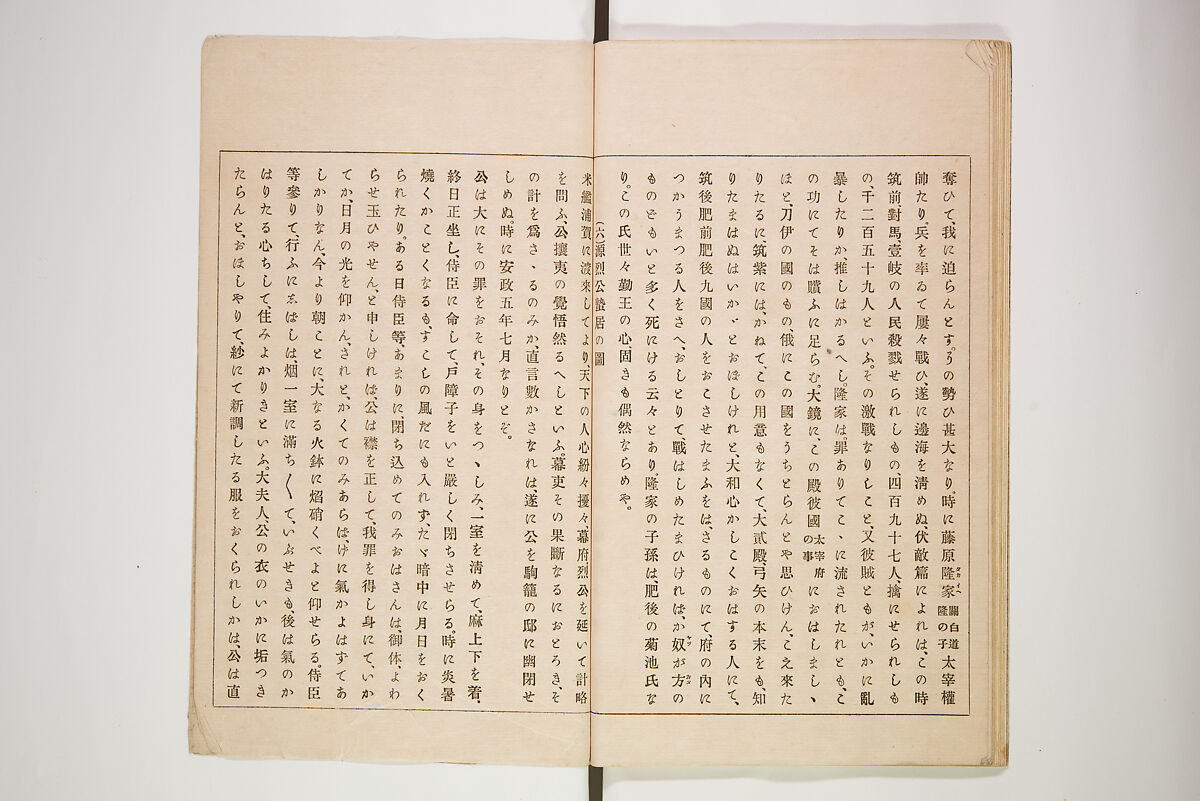 奪ひて、我に迫らんとす。その勢ひ甚大なり。時に藤原隆家タカイヘ關白道隆の子太宰權
帥たり、兵を率ゐて屢々戰ひ、遂に邊海を淸めぬ、伏敵篇によれは、この時
筑前、對馬壹岐の人民殺戮せられしもの四百九十七人、擒にせられしも
の、千二百五十九人といふ。その激戰なりしこと、又彼賊ともが、いかに亂
暴したりか、推しはかるへし。隆家は、罪ありてこゝに流されたれとも、こ
の功にてそは贖ふに足らむ。大鏡に、この殿彼國太宰府の事におはしましゝ
ほと、刀伊の國のもの、俄にこの國をうちとらんとや思ひけん、こえ來た
りたるに、筑紫には、かねて、この用意もなくて、大貳殿、弓矢の本末をも、知
りたまはぬはいかゞとおほしけれと、大和心かしこくおはする人にて、
筑後肥前肥後九國の人をおこさせたまふをは、さるものにて、府の內に
つかうまつる人をさへ、おしとりて、戰はしめたまひければ、か奴ヤツが方カタの
ものどもいと多く死にける云々とあり。隆家の子孫は、肥後の菊池氏な
り。この氏世々勤王の心、固きも偶然ならめや。
(六)源烈公蟄居の圖
米艦浦賀に渡來してより、天下の人心紛々擾々、幕府烈公を延いて計略
を問ふ、公攘夷の覺悟然るへしといふ。幕吏その果斷なるにおとろき、そ
の計を爲さゝるのみか、直言數かさなれは、遂に公を駒籠の邸に幽閉せ
しめぬ。時に安政五年七月なりとぞ。
公は大にその罪をおそれ、その身をつゝしみ、一室を淸めて、麻上下を着、
終日正坐し、侍臣に命して、戶障子をいと嚴しく閉ちさせらる。時に炎暑
燒くかことくなるも、すこしの風だにも入れず、たゞ暗中に月日をおく
られたり。ある日侍臣等、あまりに、閉ち込めてのみおはさんは、御体、よわ
らせ玉ひやせん、と申しけれは、公は襟を正して、我罪を得し身にて、いか
てか、日月の光を仰かん、されと、かくてのみあらば、けに氣かよはずてあ
しかりなん、今より朝ことに、大なる火鉢に焰硝くべよと仰せらる。侍臣
等參りて、行ふにゑばしは、烟一室に滿ち〱て、いぶせきも、後は氣のか
はりたる心ちして、住みよかりきといふ。大夫人、公の衣のいかに垢つき
たらんと、おほしやりて、紗にて新調したる服をおくられしかは、公は直